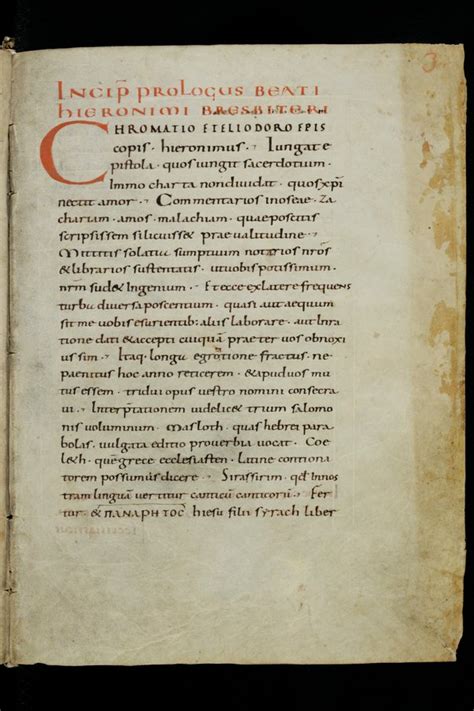 3
INCIP PROLOGUS BEATI
HIERONIMI PRESBITERI
CHROMATIO ET ELIODORO EPIS
copis . hieronimus . Iungat e
pistola . quos iungit sacerdotium .
Immo charta non diuidat . quos xpi
nectit amor . Commentarios in oseae . Za
chariam . amos . malachiam . quae poscitis
scripsissem si licuiss& prae ualitudine .
Mittitis solatia sumptuum notarios nros
& librarios sustentatis . ut uobis potissimum
nrm sud& ingenium . Et ecce ex latere frequens
turba diuersa poscentium . quasi aut aequum
sit me uobis esurientib: aliis laborare . aut in ra
tione dati & accepti cuiquā praeter uos obnoxi
us sim . Itaq. longa egrotatione fractus . ne
paenitus hoc anno reticerem . & apud uos mu
tus essem . tridui opus uestro nomini consecra
ui . Interptationem uidelic& trium salomo
nis uoluminum . Masloth . quas hebrei para
bolas . uulgata editio prouerbia uocat . Coe
leth . quē grece ecclesiasten . Latine contiona
torem possumus dicere . Sirassirim . qd in nos
tram linguam uertitur canticū canticorū . Fer
tur & ΠΑΝΑΡΗΤΟC hiesu filii syrach liber